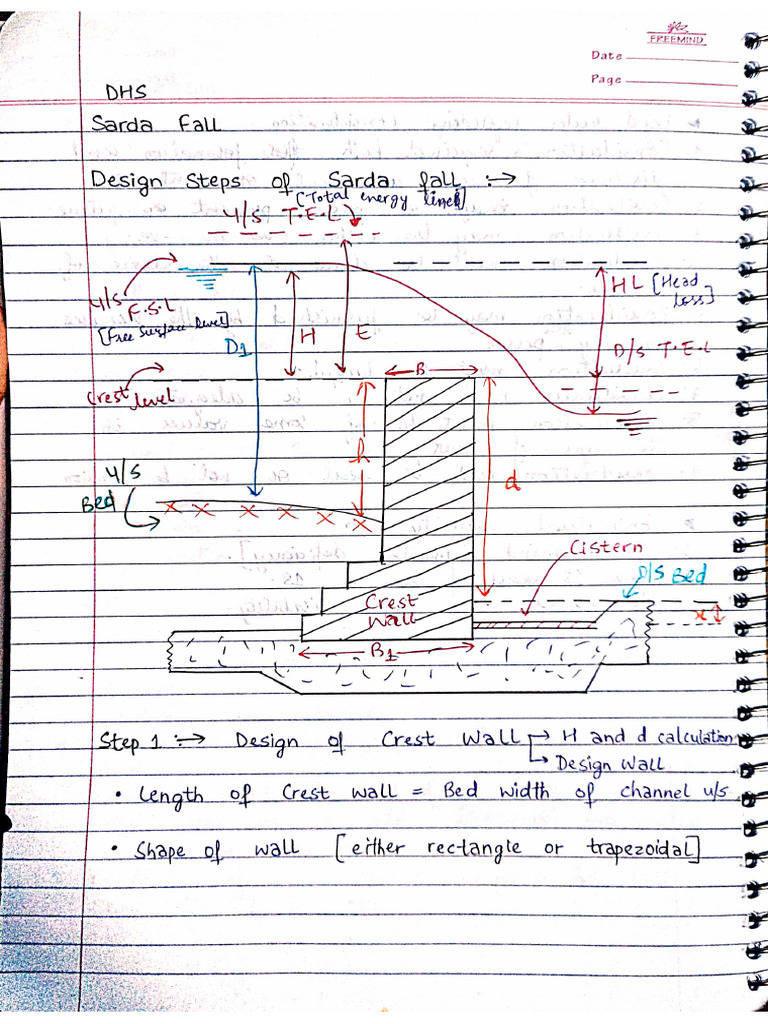 FREEMIND
Date
Page
DHS
Sarda Fall
Design Steps of Sarda fall :→
[Total energy line]
U/S T.E.L
U/S F.S.L
[Free Surface level]
HL [Head Loss]
D1
H
E
D/S T.E.L
B
Crest level
h
d
U/S Bed
Cistern
D/S Bed
Crest Wall
x
B1
Step 1 :→ Design of Crest Wall → H and d calculation
↳ Design Wall
• Length of Crest wall = Bed width of channel u/s
• Shape of wall [either rectangle or trapezoidal]